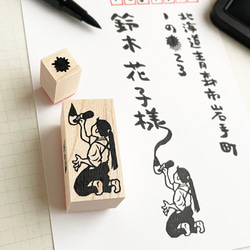 北海道青森市岩手町
1の●23
鈴木花子様